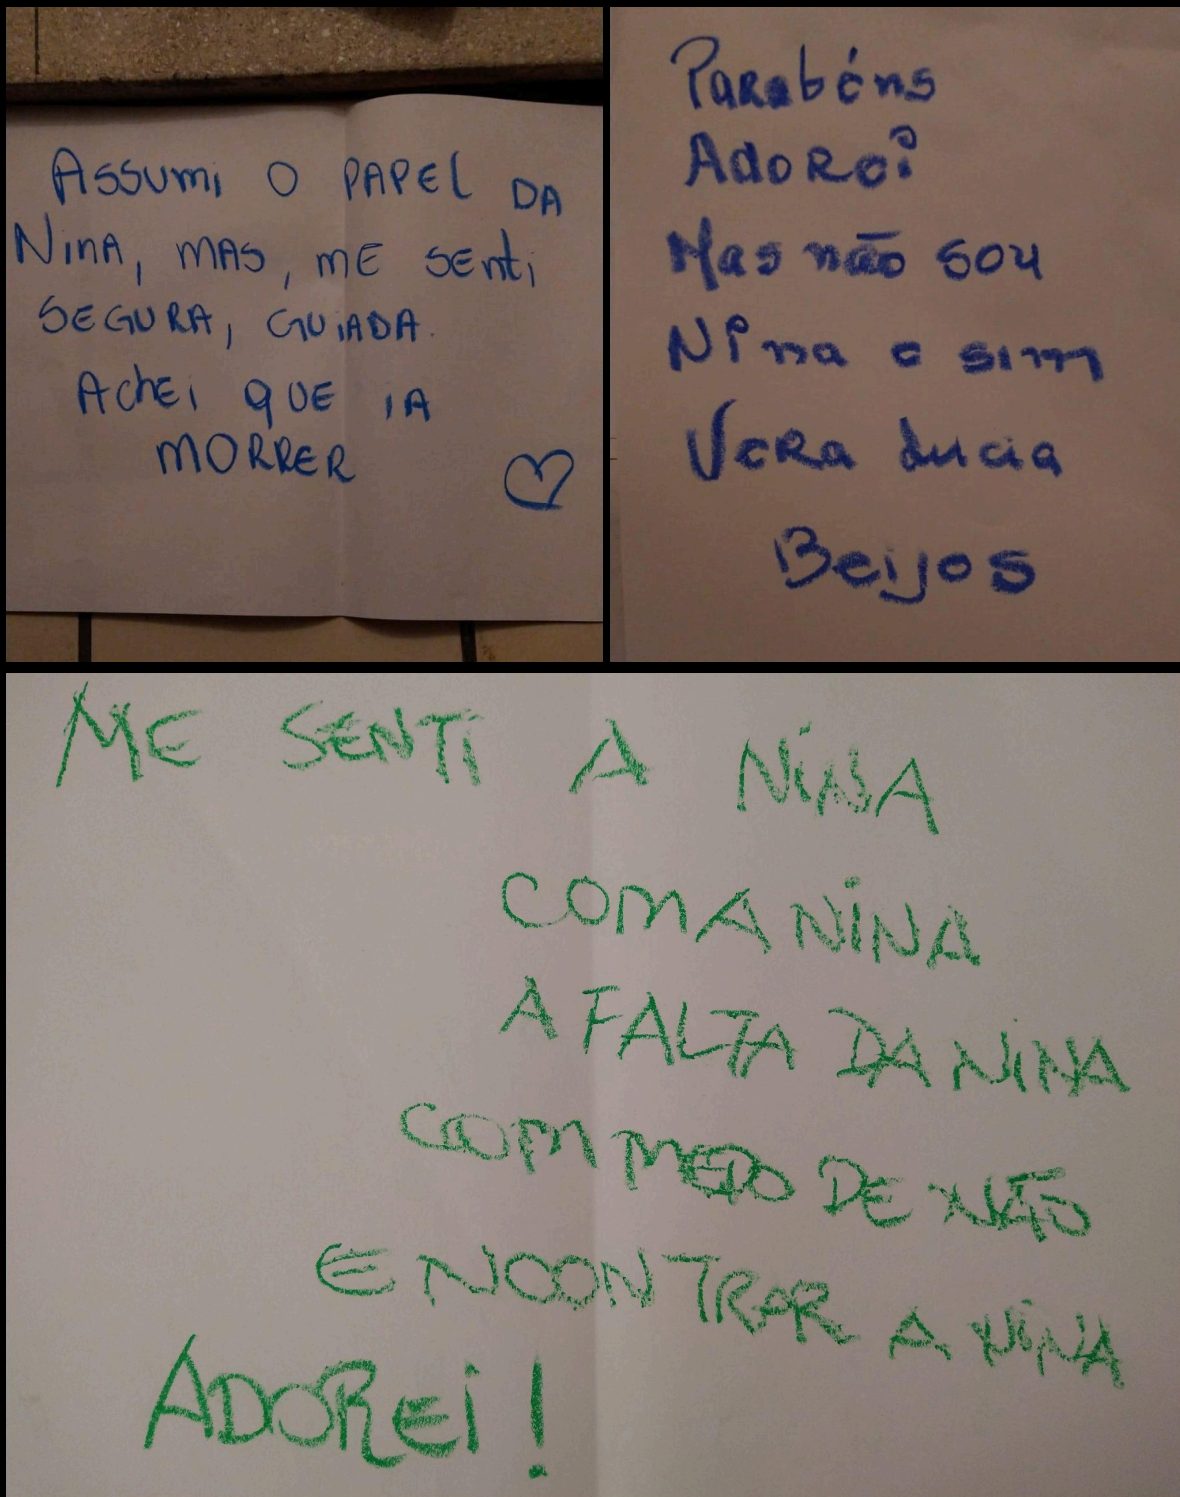 ASSUMi O PAPEL DA
NiNA, MAS, ME SENti
SEGURA, GUiADA.
AChEi QUE iA
MORRER
Parabéns
Adorei
Mas não sou
Nina e sim
Vera Lucia
Beijos
ME SENTi A NiNA
COM A NiNA
A FALTA DA NiNA
COM MEDO DE NÃO
ENCONTRAR A NiNA
ADOREi!